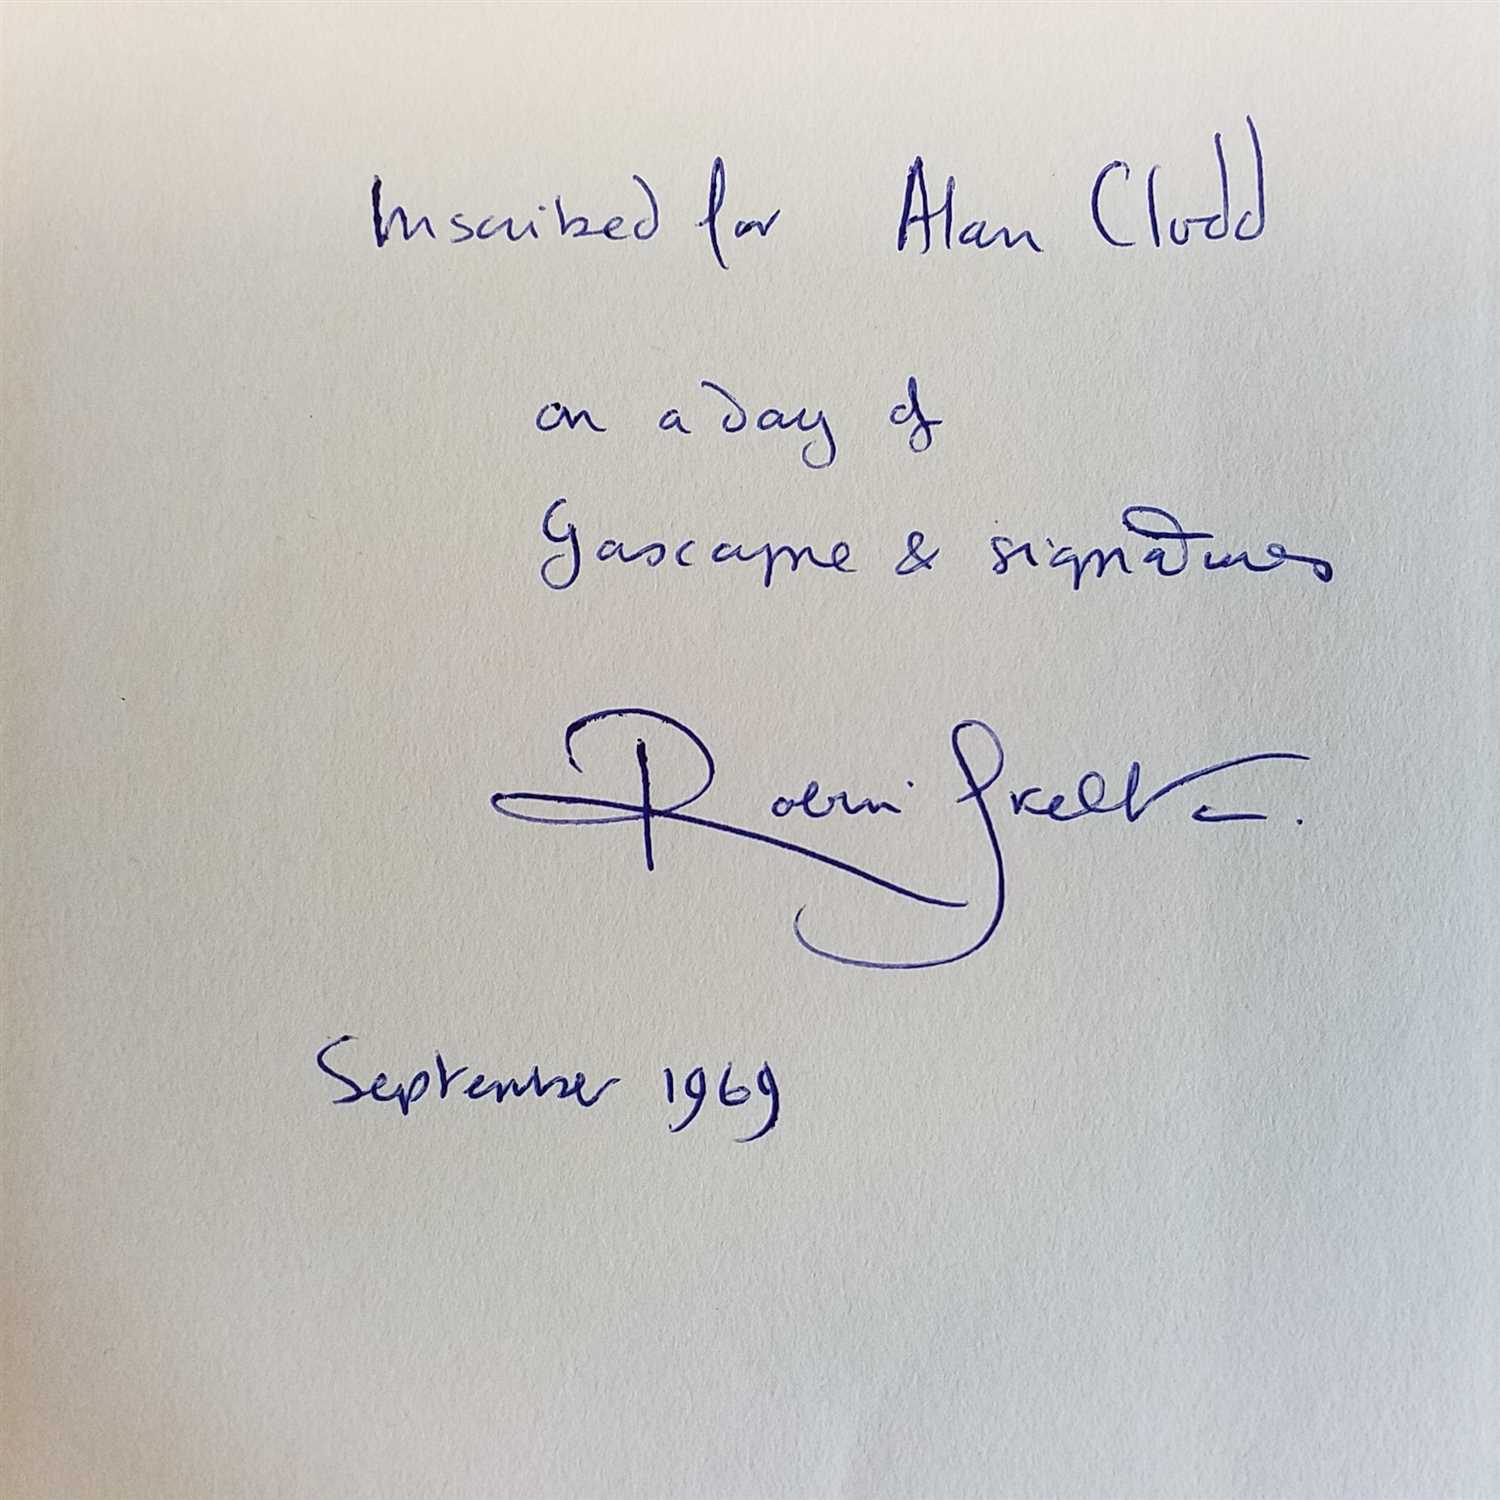 Inscribed for Alan Clodd
on a day of
Gascoyne & signatures
Robin Skelton.
September 1969